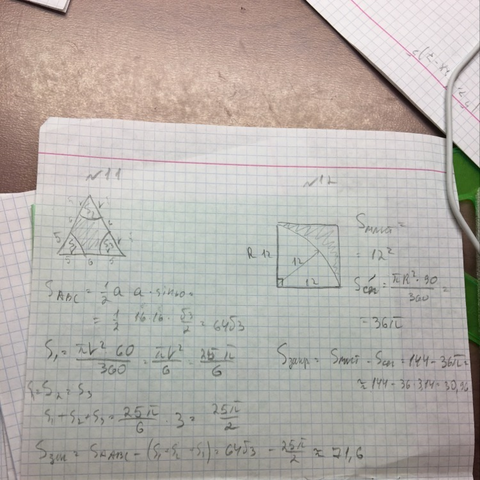 №11
№12
S ABC = 1/2 a · a · sin60 =
= 1/2 · 16 · 16 · √3/2 = 64√3
S₁ = πr² · 60/360 = πr²/6 = 25π/6
S₁ = S₂ = S₃
S₁ + S₂ + S₃ = 25π/6 · 3 = 25π/2
Sзак = S ABC - (S₁ + S₂ + S₃) = 64√3 - 25π/2 ≈ 71,6
R 12
12
12
= 12²
Sсек = πR² · 90/360 =
= 36π
Sзакр = - Sсек = 144 - 36π =
≈ 144 - 36 · 3,14 = 30,96